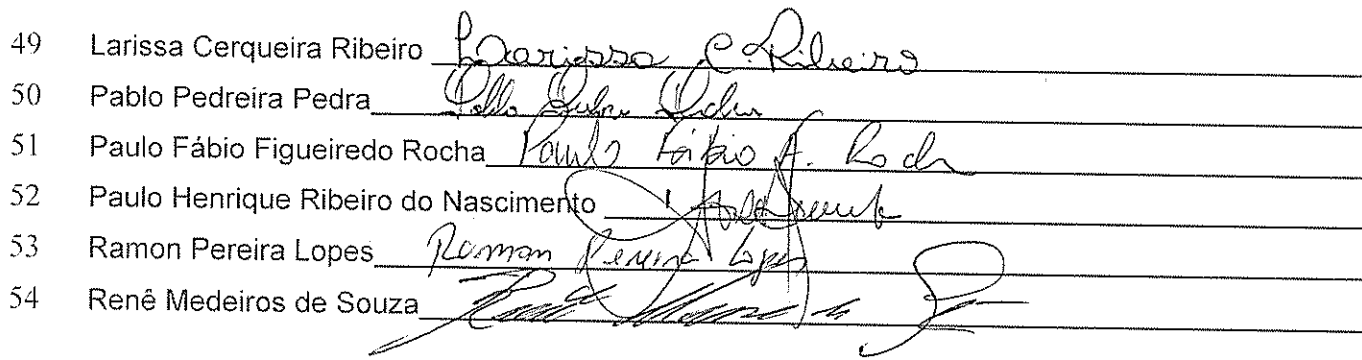 49 Larissa Cerqueira Ribeiro Larissa C. Ribeiro
50 Pablo Pedreira Pedra Pablo Pedra
51 Paulo Fábio Figueiredo Rocha Paulo Fábio F. Rocha
52 Paulo Henrique Ribeiro do Nascimento
53 Ramon Pereira Lopes Ramon Pereira Lopes
54 Renê Medeiros de Souza